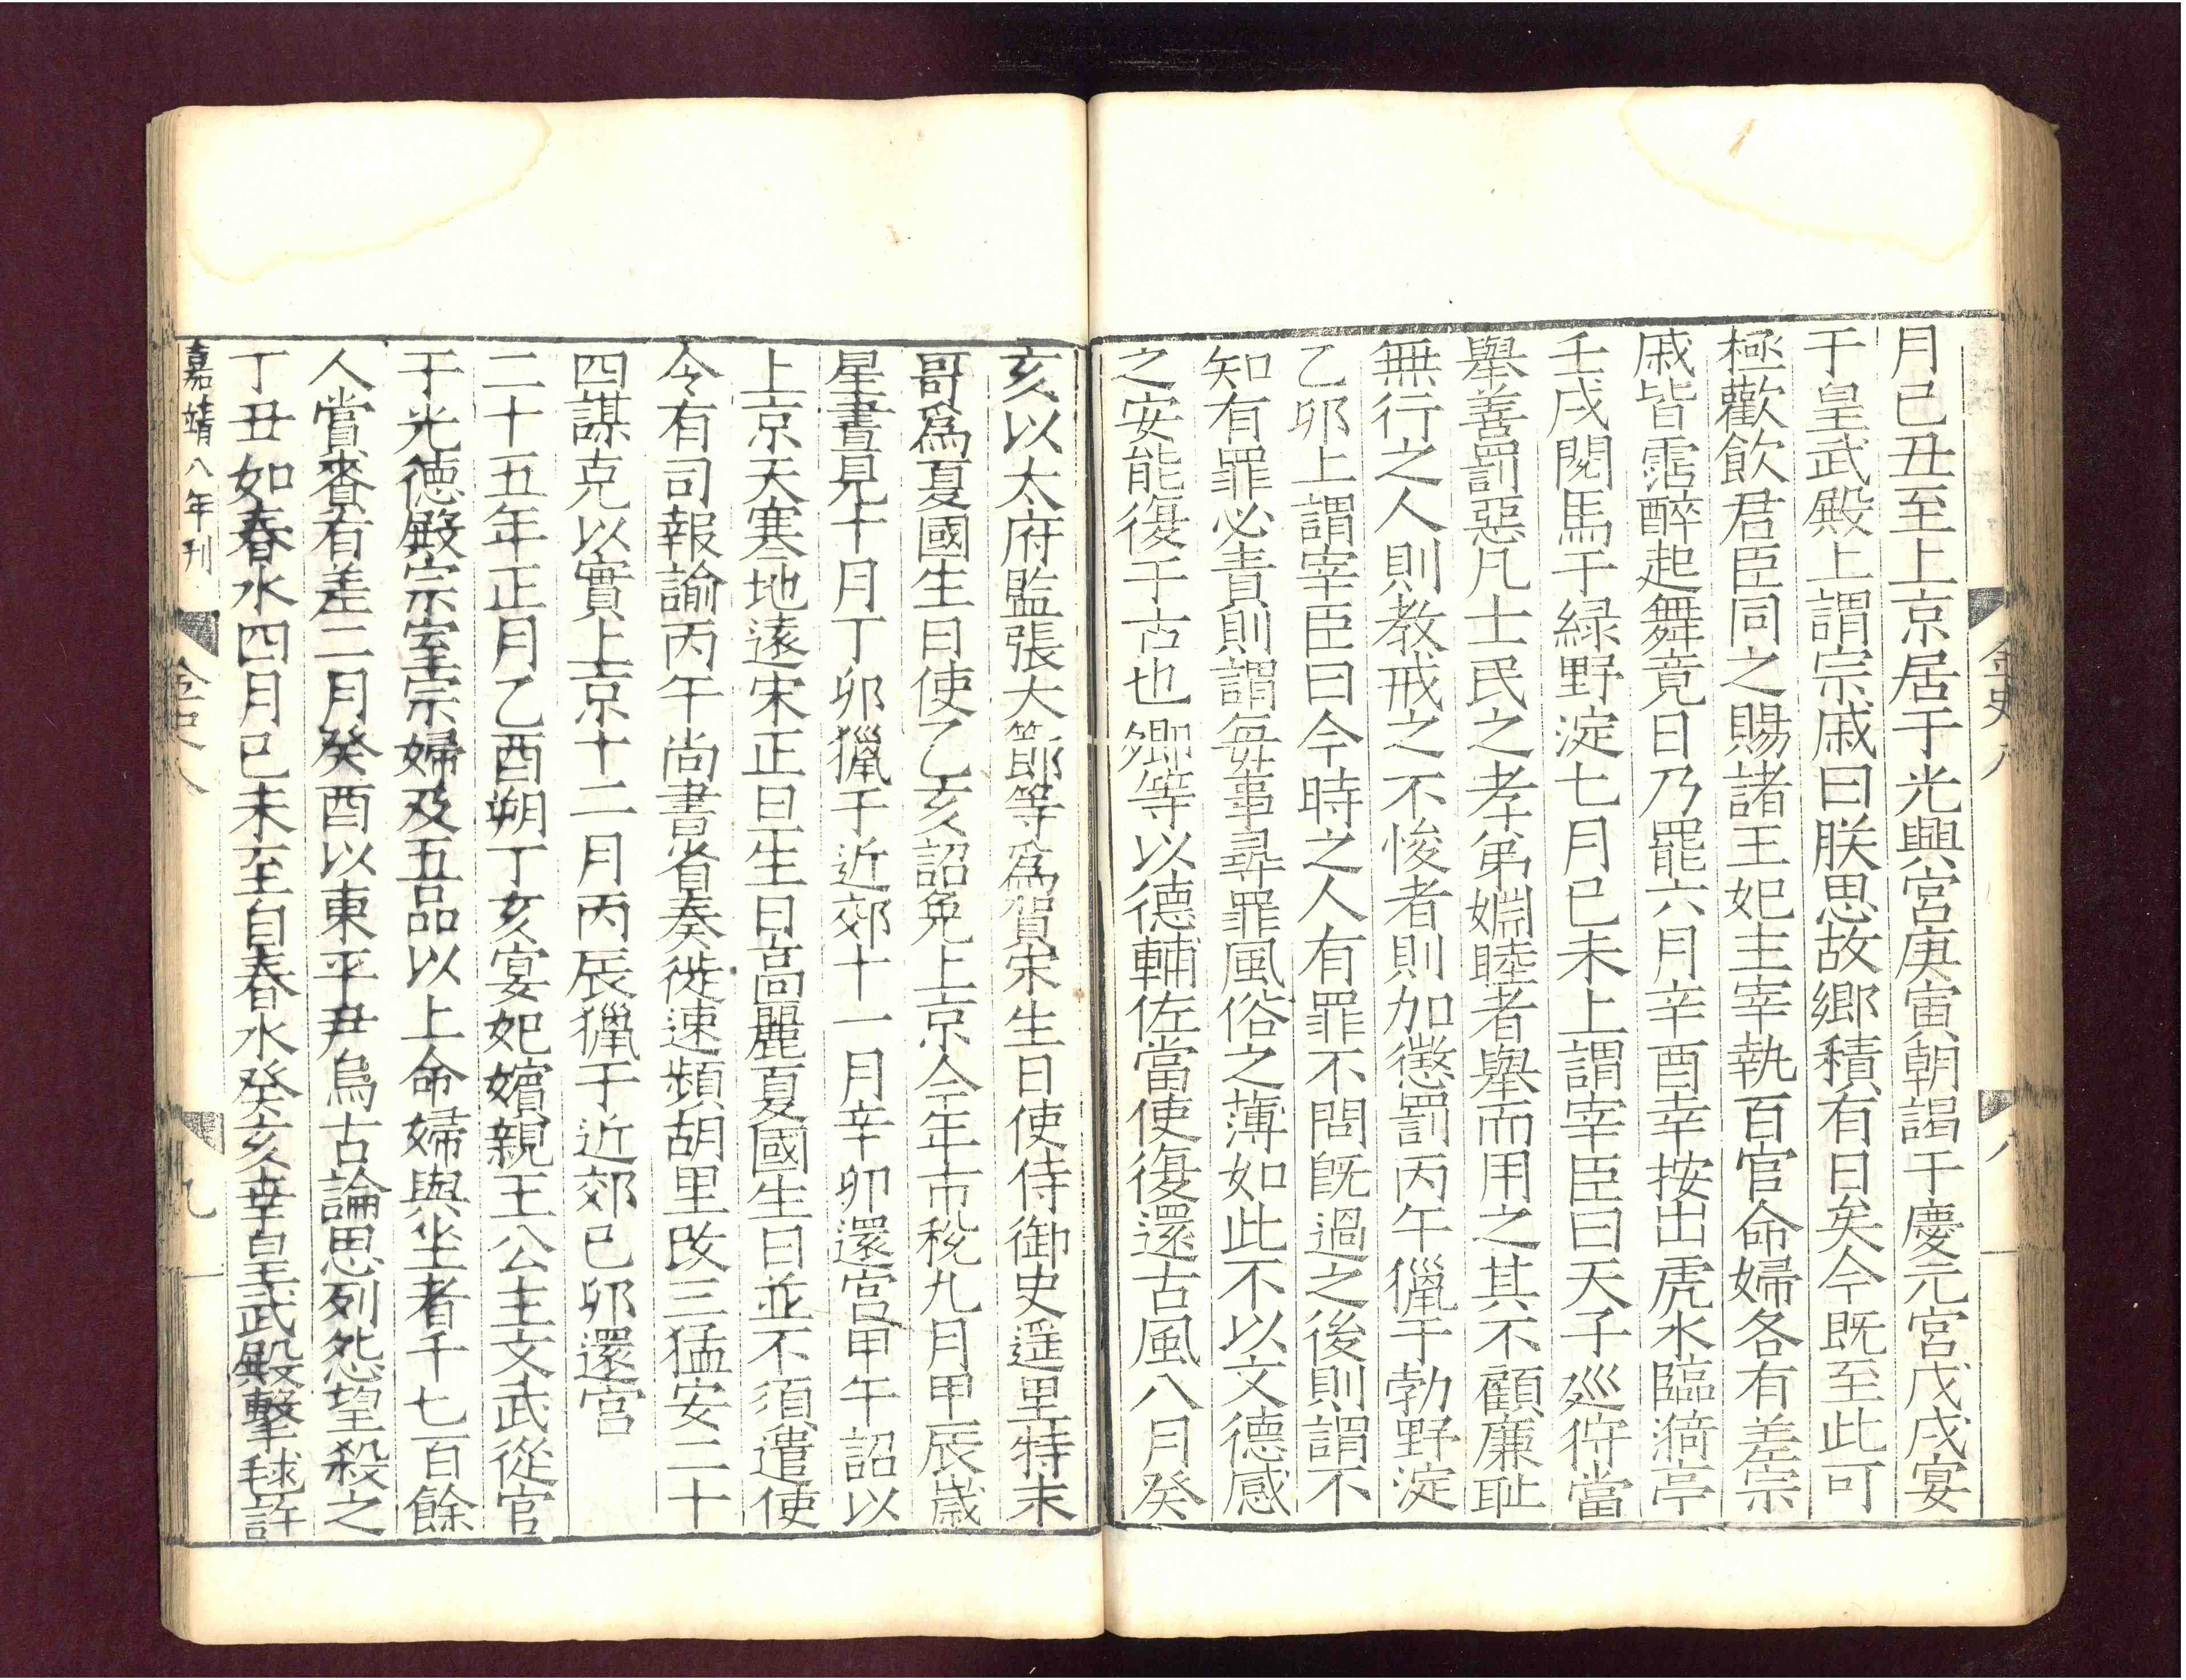 金史八
八
月己丑至上京居于光興宮庚寅朝謁于慶元宮戊戌宴
于皇武殿上謂宗戚曰朕思故鄉積有日矣今既至此可
極歡飲君臣同之賜諸王妃主宰執百官命婦各有差宗
戚皆霑醉起舞竟日乃罷六月辛酉幸按出虎水臨漪亭
壬戌閱馬于緑野淀七月己未上謂宰臣曰天子廵狩當
舉善罰惡凡士民之孝弟婣睦者舉而用之其不顧廉恥
無行之人則教戒之不悛者則加懲罰丙午獵于勃野淀
乙卯上謂宰臣曰今時之人有罪不問既過之後則謂不
知有罪必責則謂每事尋罪風俗之薄如此不以文德感
之安能復于古也卿等以德輔佐當使復還古風八月癸
亥以太府監張大節等爲賀宋生日使侍御史遥里特末
哥爲夏國生日使乙亥詔免上京今年市稅九月甲辰歲
星晝見十月丁卯獵于近郊十一月辛卯還宮甲午詔以
上京天寒地遠宋正旦生日高麗夏國生日並不須遣使
令有司報諭丙午尚書省奏徙速頻胡里改三猛安二十
四謀克以實上京十二月丙辰獵于近郊己卯還宮
二十五年正月乙酉朔丁亥宴妃嬪親王公主文武從官
于光德殿宗室宗婦及五品以上命婦與坐者千七百餘
人賞賚有差二月癸酉以東平尹烏古論思列怨望殺之
丁丑如春水四月己未至自春水癸亥幸皇武殿擊毬許
嘉靖八年刊
金史八
九